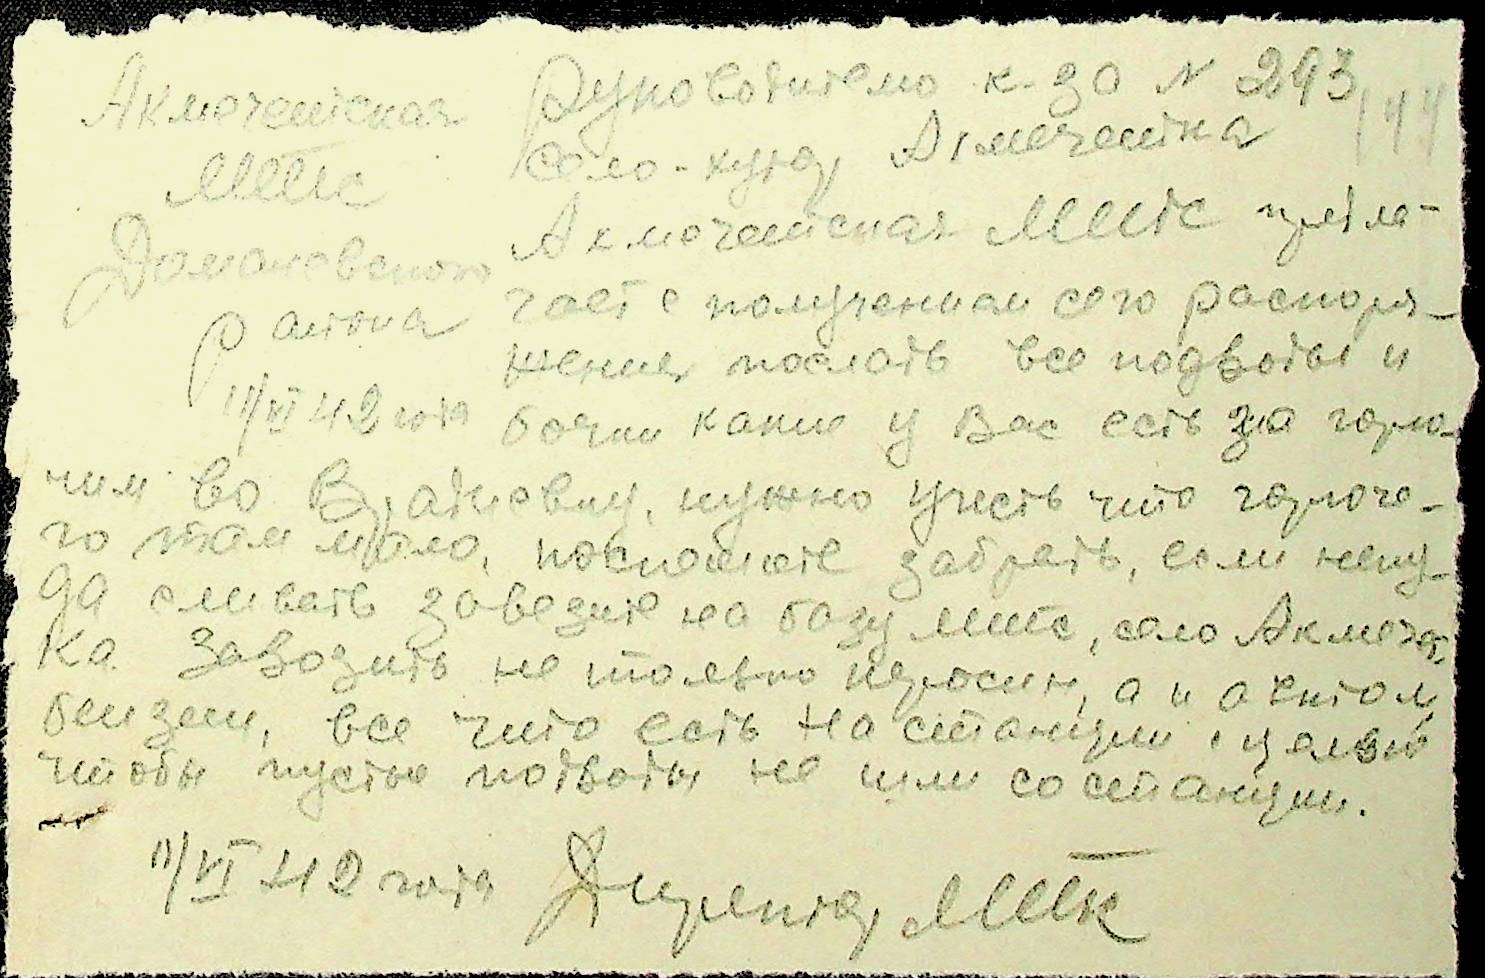 Акмечетская
МТС
Домановского
района
11/VI 42 года
Руководителю к-за № 293
село-хутор Акмечетка
Акмечетская МТС предла-
гает с получением сего распоря-
жения послать все подводы и
бочки какие у Вас есть за горю-
чим во Врадиевку, нужно учесть что горюче-
го там мало, поспешите забрать, если неку-
да сливать завезите на базу МТС, село Акмечет
ка. Завозить не только керосин, а и автол,
бензин, все что есть на станции, целью
чтобы пустые подводы не шли со станции.
11/VI 42 года Директор МТС